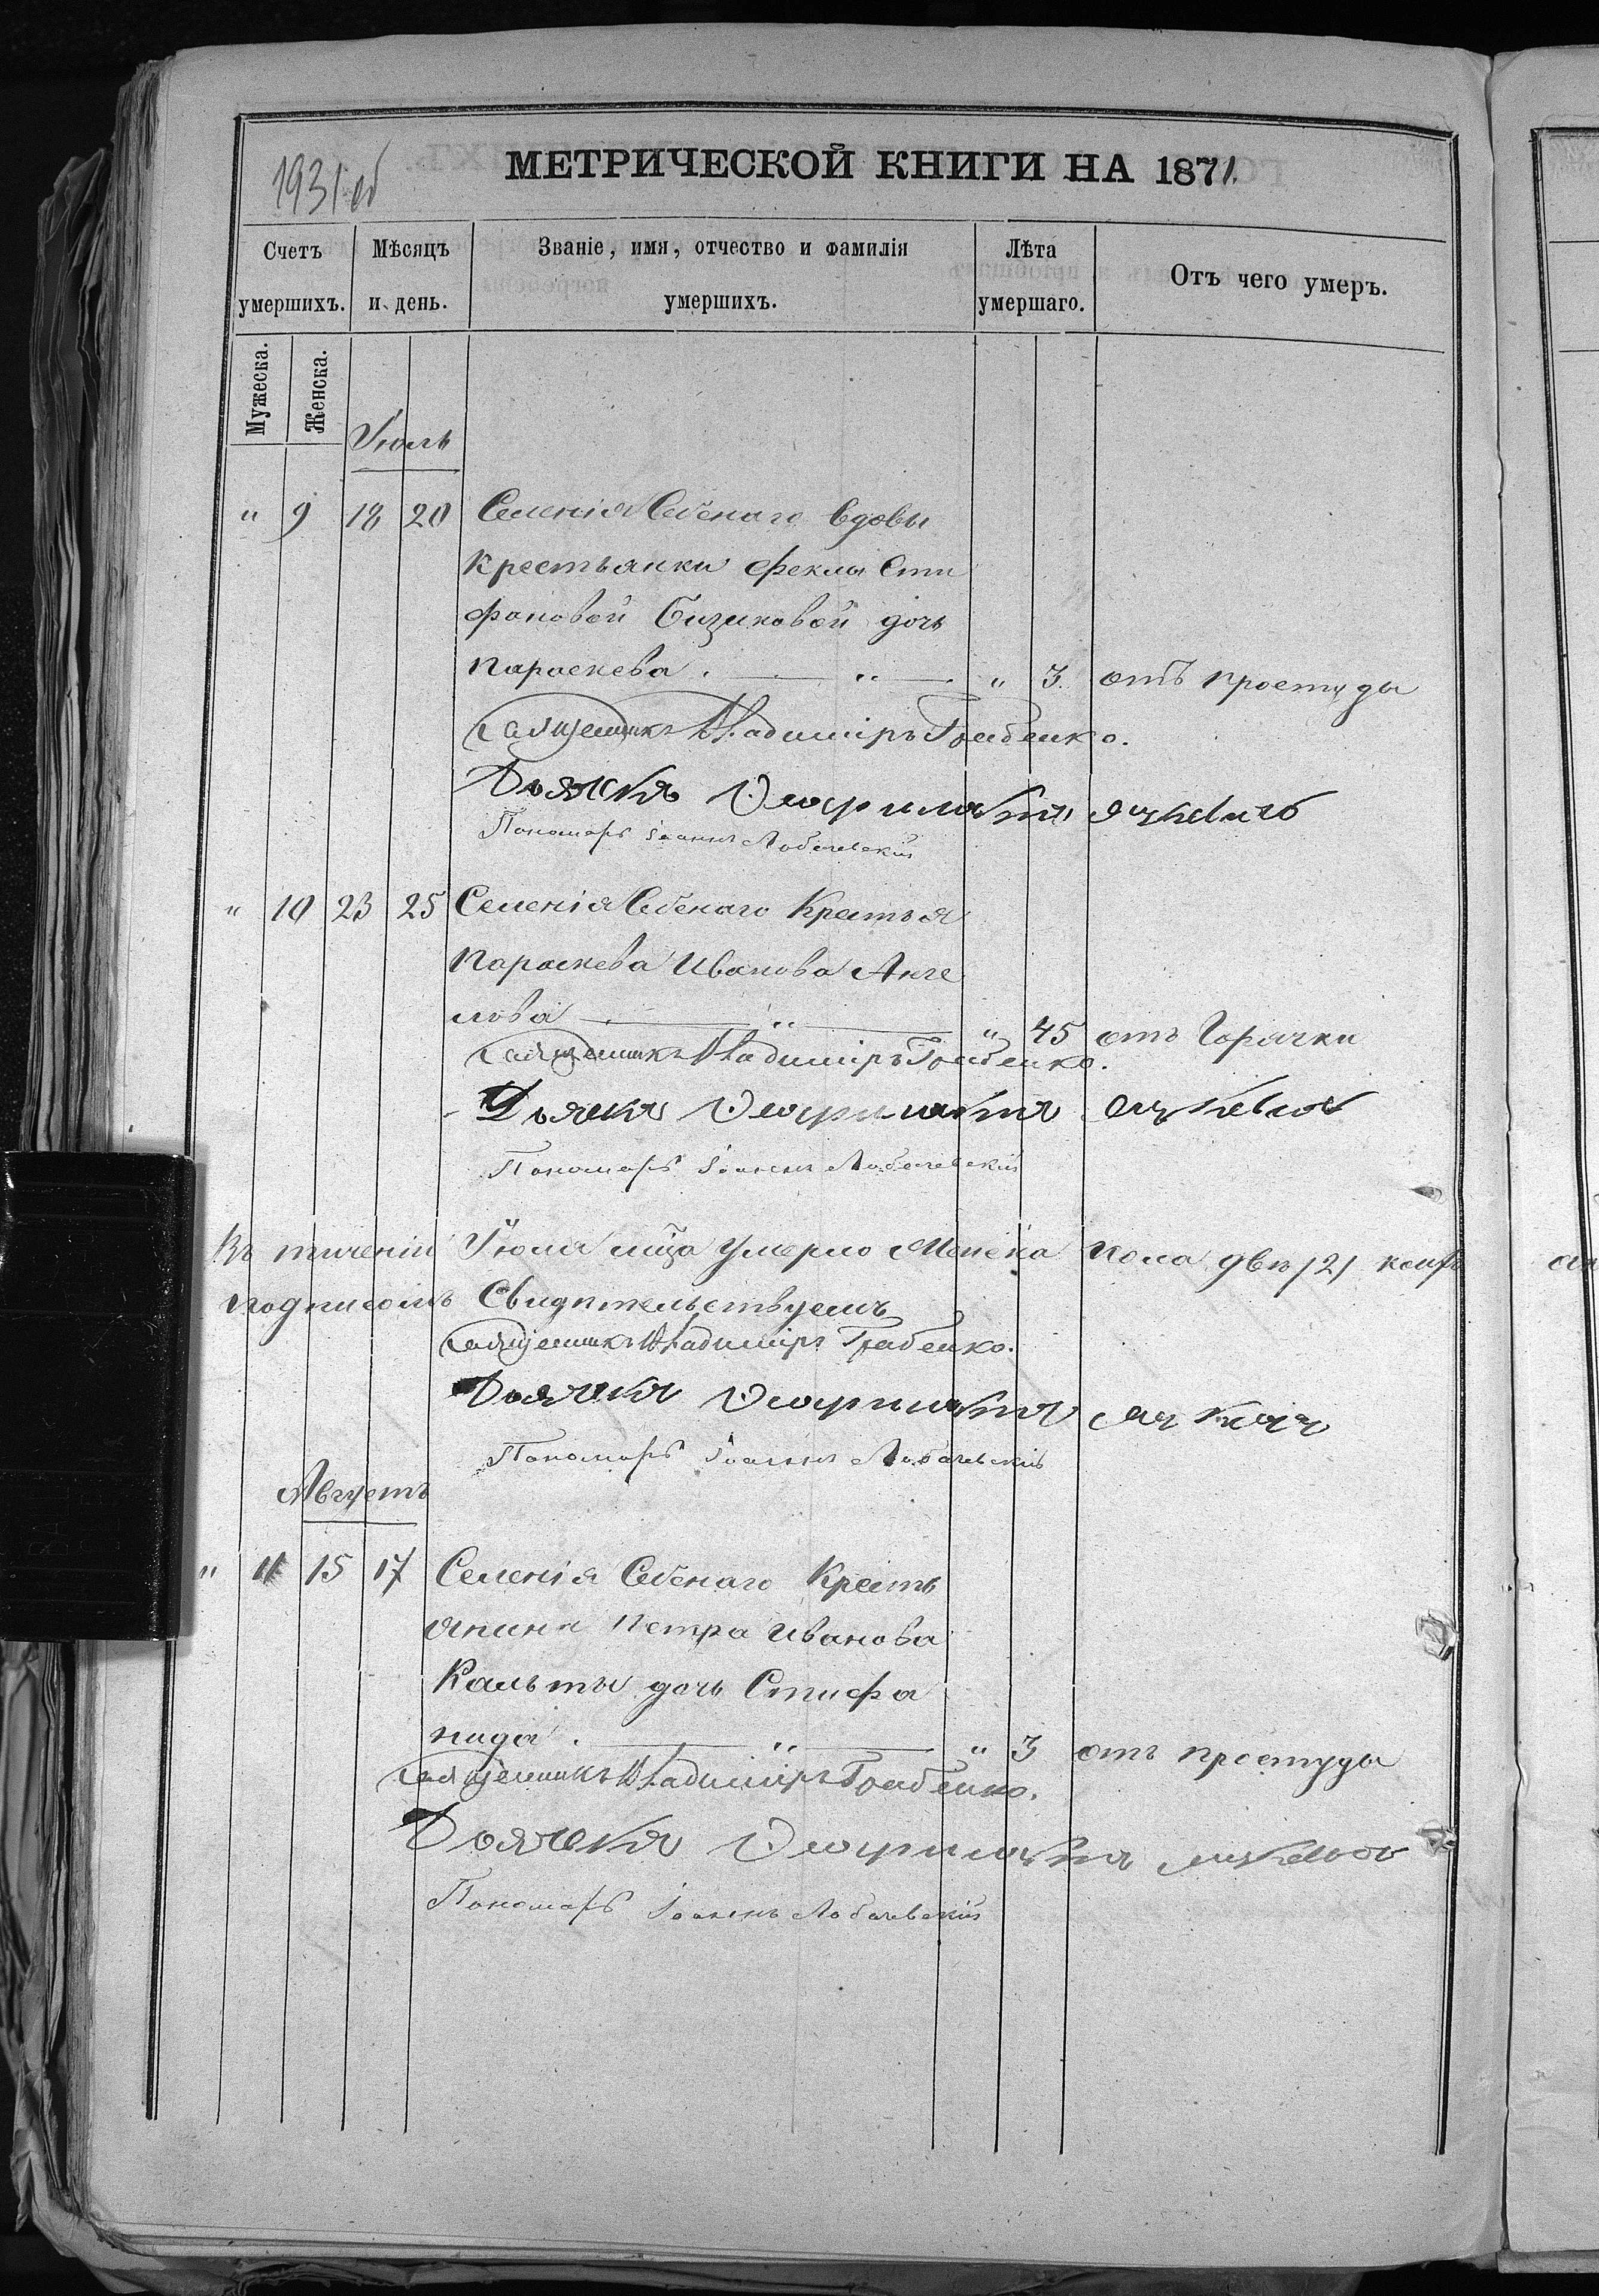 1931 об
МЕТРИЧЕСКОЙ КНИГИ НА 1871.
Счетъ умершихъ.
Мѣсяцъ и день.
Званіе, имя, отчество и фамилія умершихъ.
Лѣта умершаго.
Отъ чего умеръ.
Мужеска.
Женска.
Іюль
" 9 18 20 Селенія Собснаго вдовы
Крестьянки Феклы Сти
фановой Бизиковой дочь
Пароскева . — " — " 3. отъ простуды
Священникъ Владиміръ Гребенко.
Дьячекъ
Пономарь Іоаннъ Лобачевскій
" 10 23 25 Селенія Собснаго Крестья
Пароскева Иванова Анге
лова — " — " 45 отъ Горячки
Священникъ Владиміръ Гребенко.
Дьячекъ
Пономарь Іоаннъ Лобачевскій
Въ теченіи Іюля мца умерло Женска пола две /2/
подписомъ Свидѣтельствуемъ
Священникъ Владиміръ Гребенко.
Дьячекъ
Пономарь Іоаннъ Лобачевскій
Августъ
" 11 15 17 Селенія Собснаго Кресть
янина Петра Иванова
Кальты дочь Стифа
нида . — " — " 3 отъ простуды
Священникъ Владиміръ Гребенко.
Дьячекъ
Пономарь Іоаннъ Лобачевскій